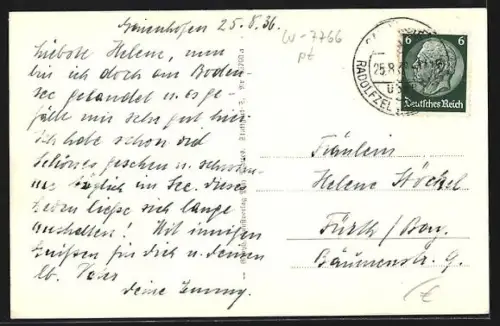 Gaienhofen 25.8.36.
Liebste Helene, nun
bin ich doch am Boden-
see gelandet u. es ge-
fällt mir sehr gut hier.
Ich habe schon viel
Schönes gesehen u. schwim-
me täglich im See. dieses
Leben ließe sich lange
aushalten! Mit innigen
Grüßen für dich u. deinen
lb. Vater
deine
W-7766
pf
25.8.
RADOLFZELL
6 6
Deutsches Reich
Fräulein
Helene Höckel
Fürth / Bay.
Bäumenstr. 9.
€